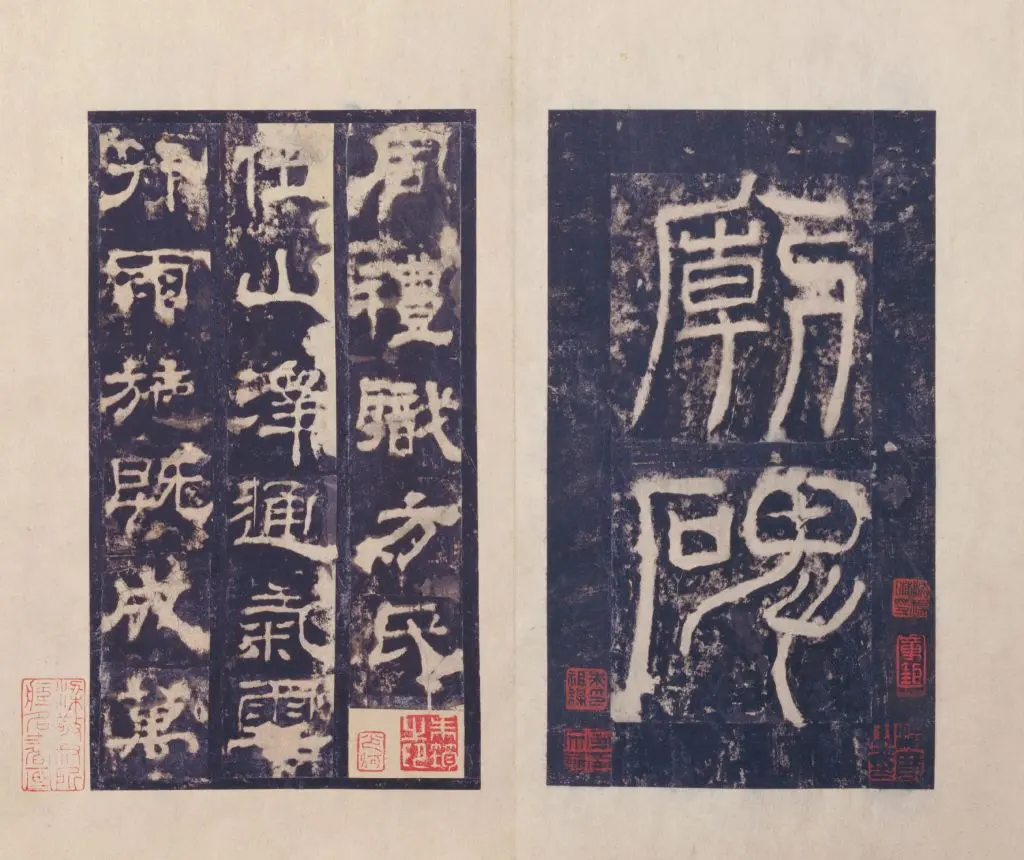 廟碑
周禮職方氏
位山澤通氣雲
行雨施既成萬